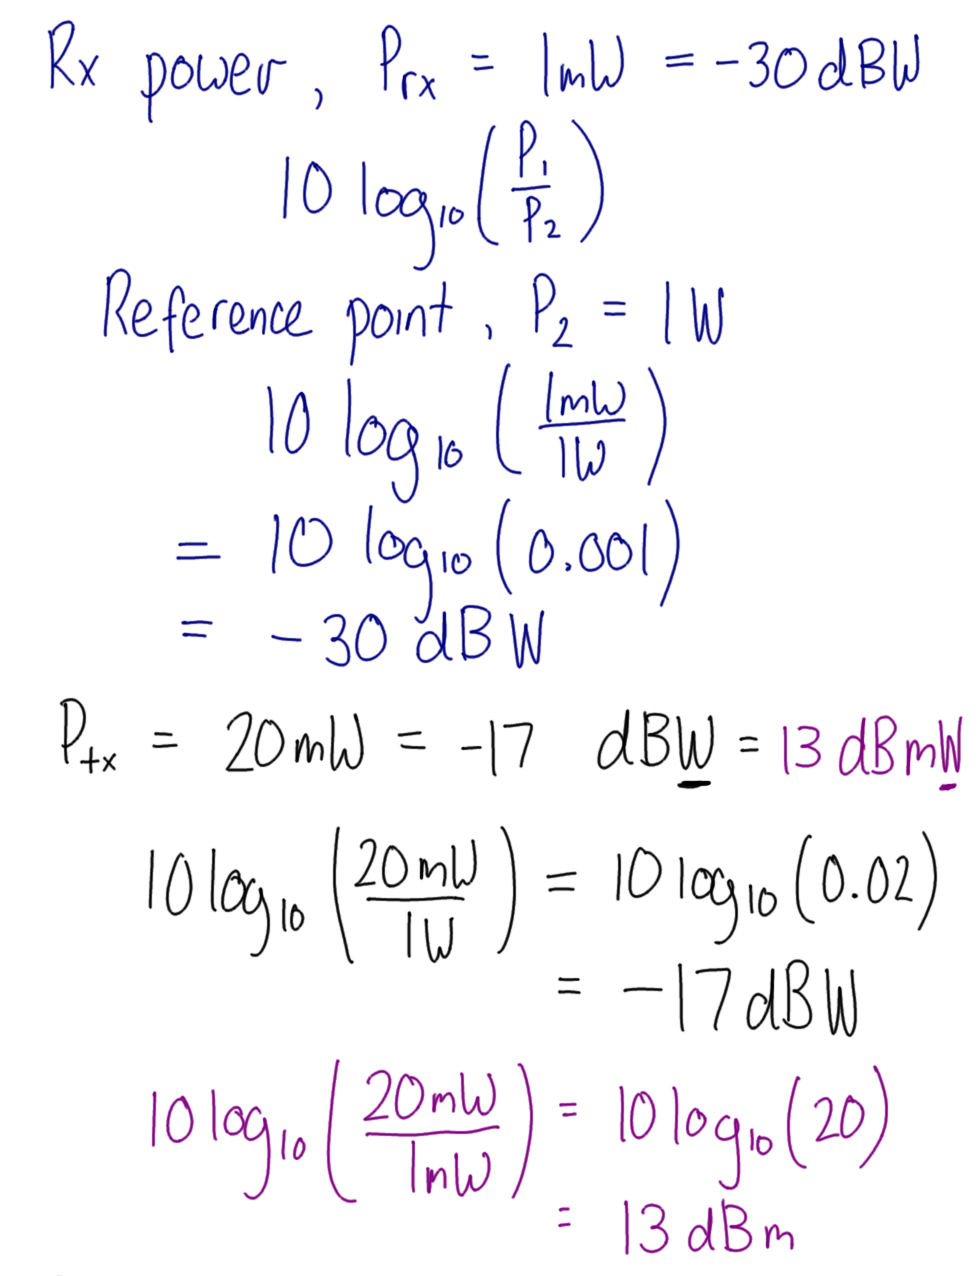 Rx power, Prx = 1mW = -30 dBW
10 log₁₀(P₁/P₂)
Reference point, P₂ = 1W
10 log₁₀(1mW/1W)
= 10 log₁₀(0.001)
= -30 dBW
Ptx = 20mW = -17 dBW = 13 dBmW
10 log₁₀(20mW/1W) = 10 log₁₀(0.02)
= -17 dBW
10 log₁₀(20mW/1mW) = 10 log₁₀(20)
= 13 dBm